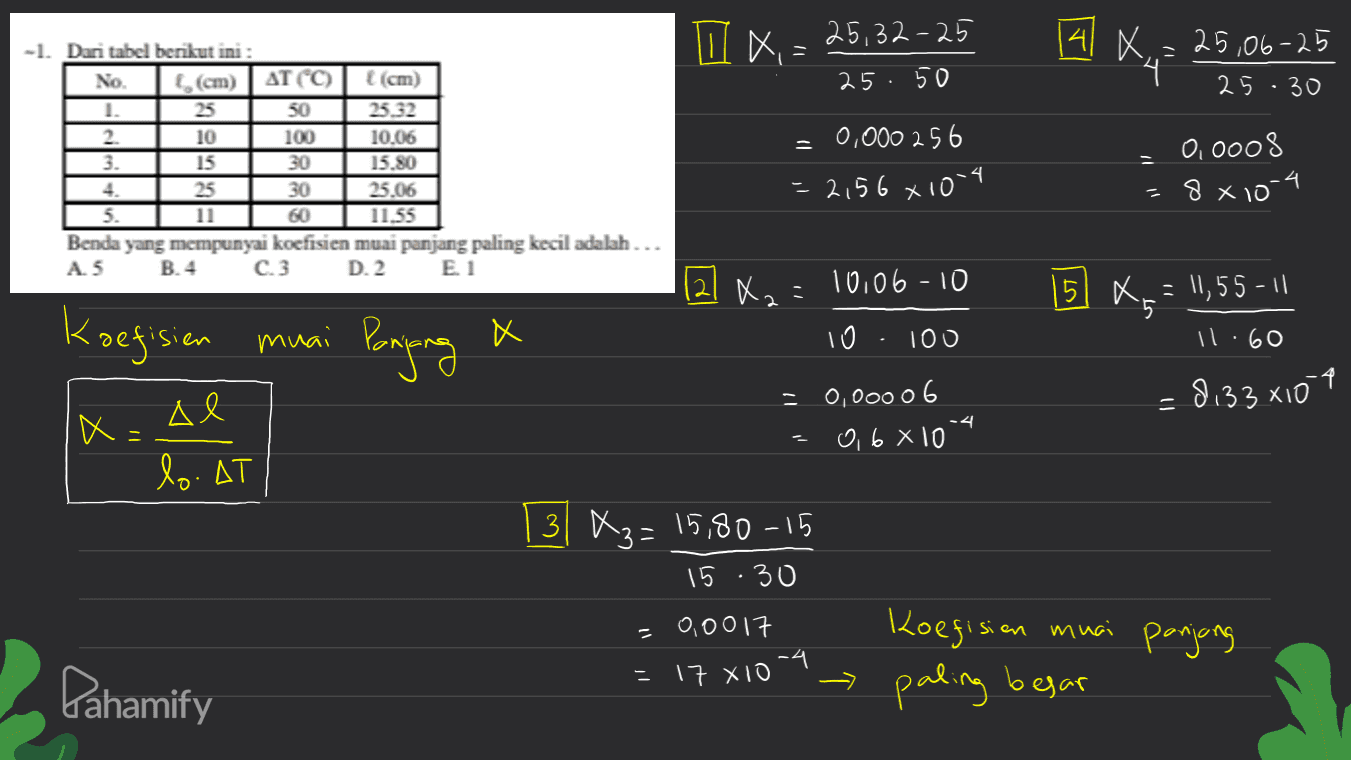 ~1. Dari tabel berikut ini :
No. ℓ₀ (cm) ΔT (°C) ℓ (cm)
1. 25 50 25,32
2. 10 100 10,06
3. 15 30 15,80
4. 25 30 25,06
5. 11 60 11,55
Benda yang mempunyai koefisien muai panjang paling kecil adalah . . .
A. 5 B. 4 C. 3 D. 2 E. 1
Koefisien muai Panjang α
α = Δl / l₀ . ΔT
1 α₁ = 25,32 - 25 / 25 . 50
= 0,000256
= 2,56 x 10⁻⁴
2 α₂ = 10,06 - 10 / 10 . 100
= 0,00006
= 0,6 x 10⁻⁴
3 α₃ = 15,80 - 15 / 15 . 30
= 0,0017
= 17 x 10⁻⁴ → Koefisien muai panjang
paling besar
4 α₄ = 25,06 - 25 / 25 . 30
= 0,0008
= 8 x 10⁻⁴
5 α₅ = 11,55 - 11 / 11 . 60
= 8,33 x 10⁻⁴
Pahamify